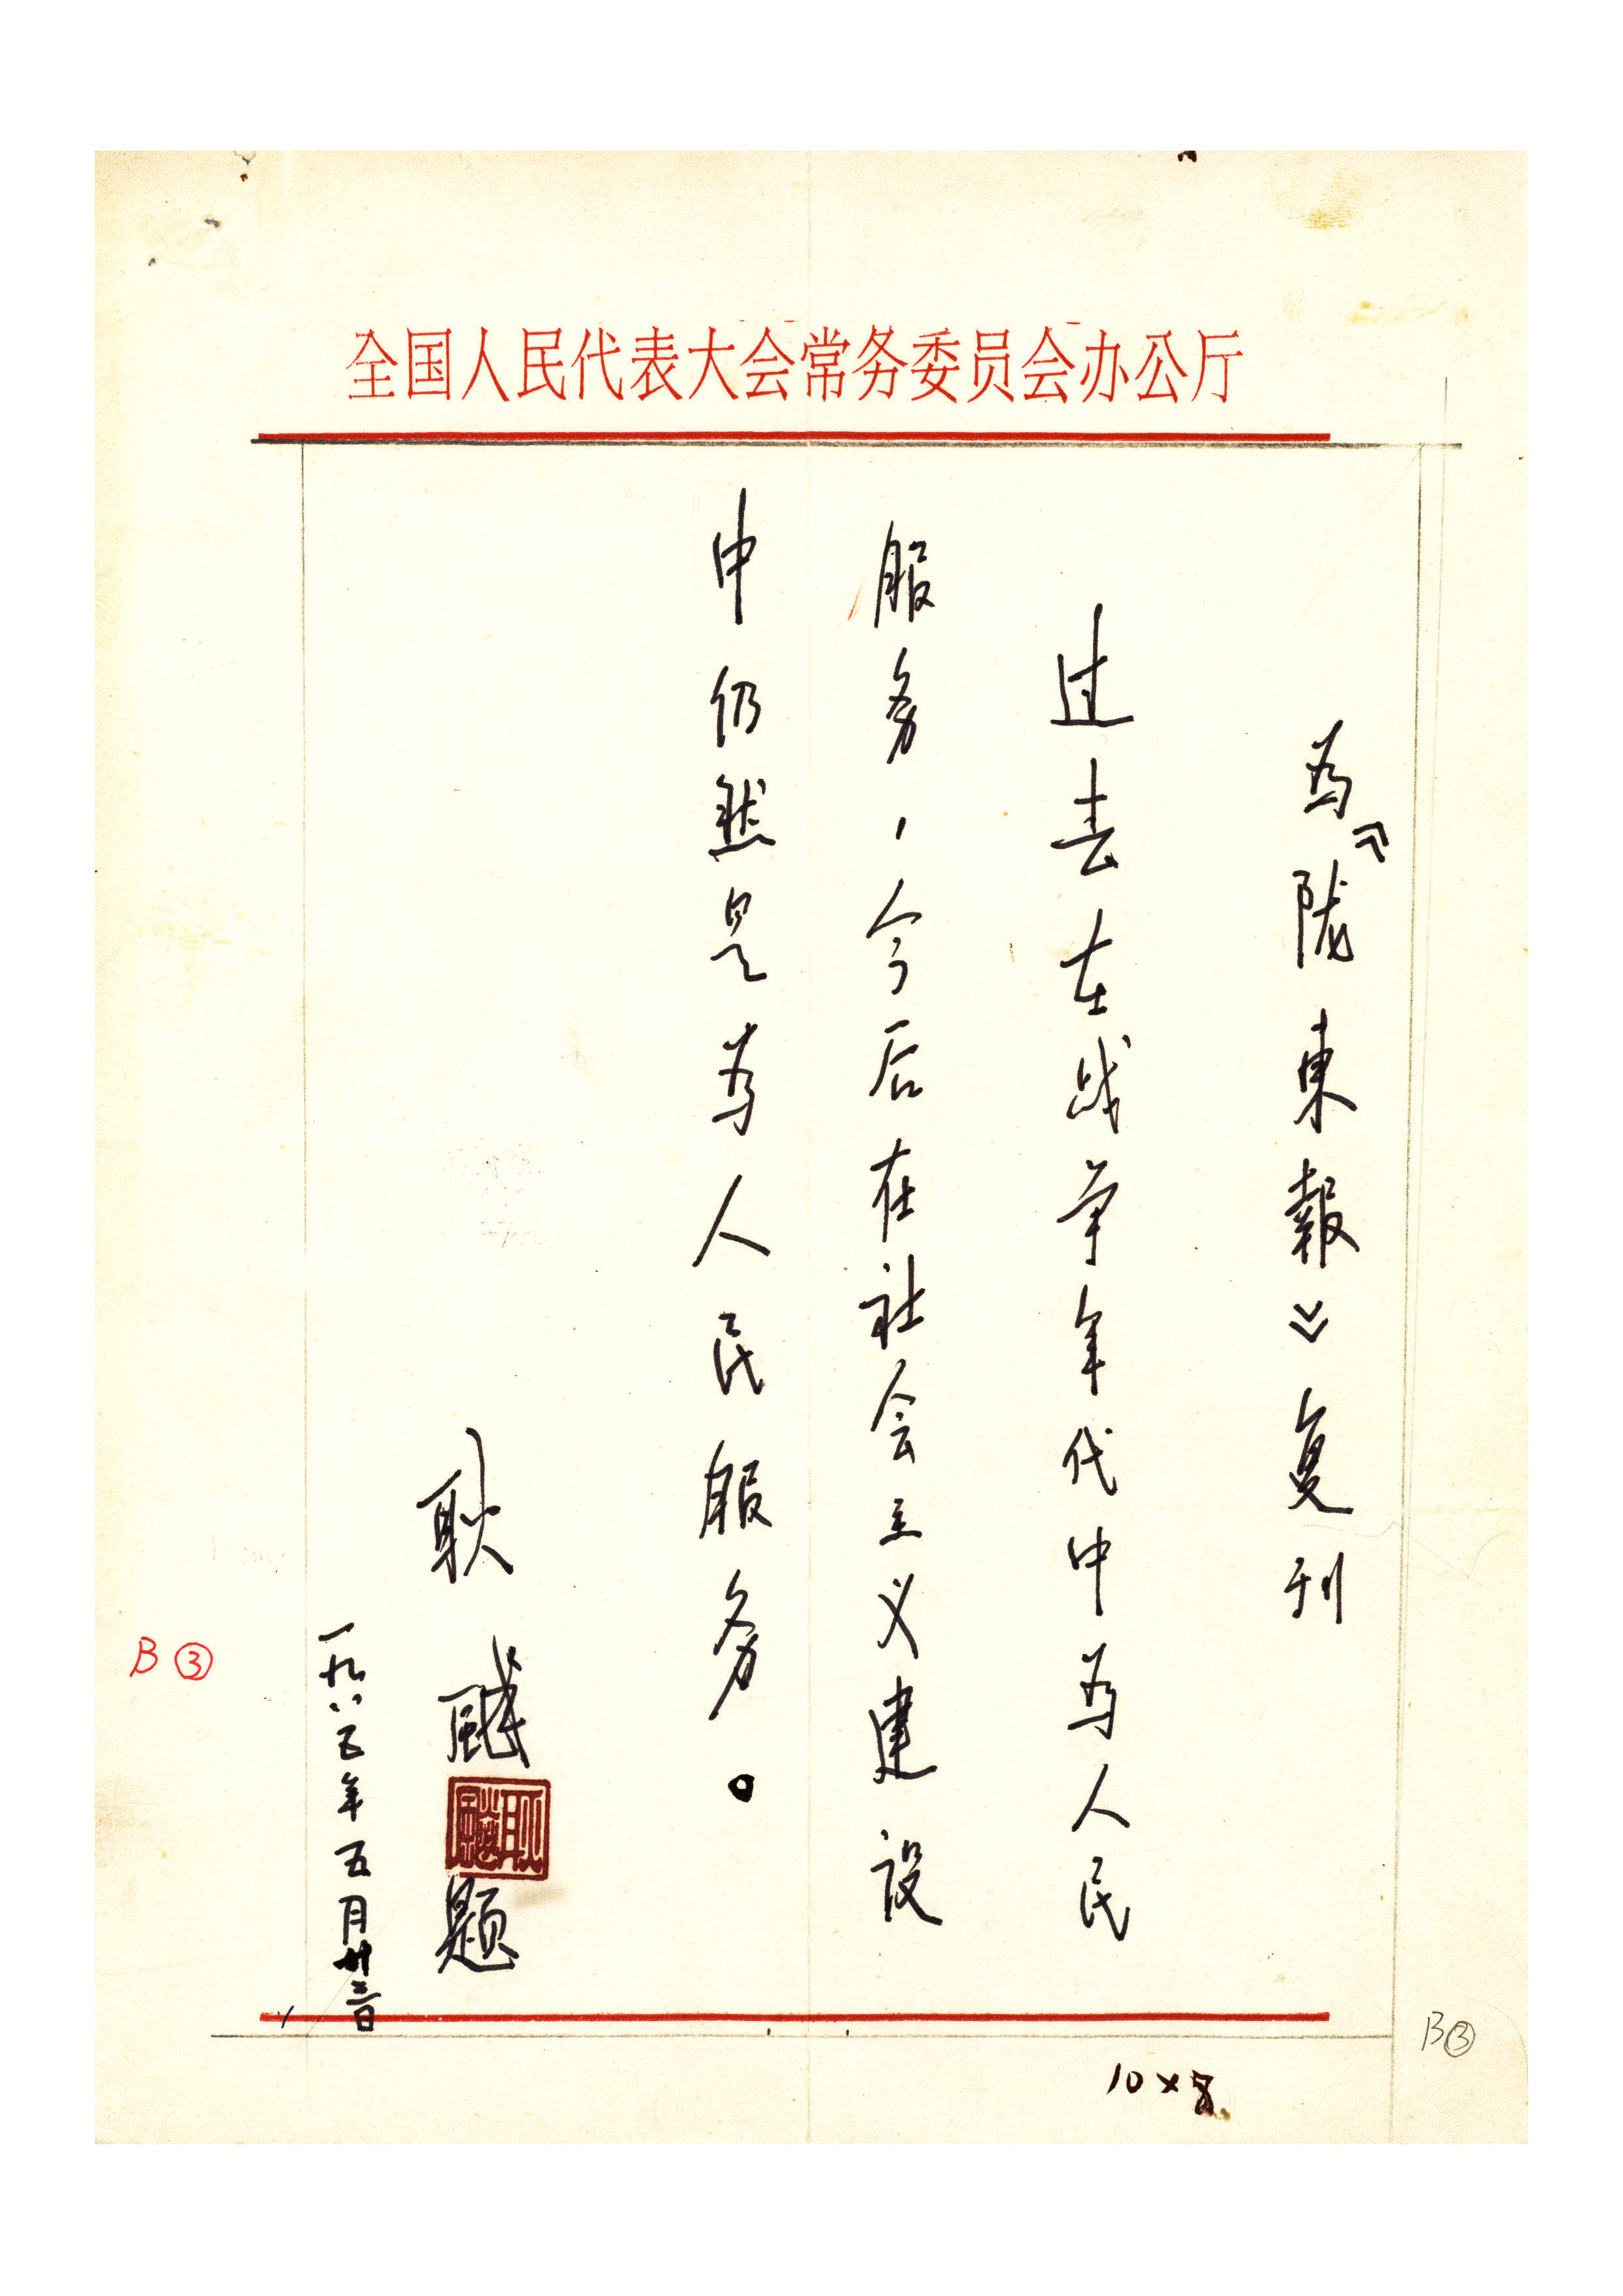 全国人民代表大会常务委员会办公厅
为《陇東報》复刊
过去在战争年代中为人民
服务，今后在社会主义建设
中仍然是为人民服务。
耿飚
耿飚
题
一九八五年五月廿三日
B③
B③
10×8